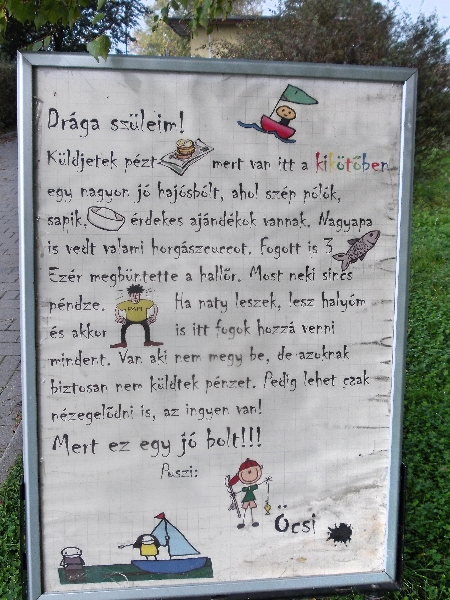 Drága szüleim!
Küldjetek pézt mert van itt a kikötőben
egy nagyon jó hajósbólt, ahol szép pólók,
sapik, érdekes ajándékok vannak. Nagyapa
is vedt valami horgászcuccot. Fogott is 3
Ezér megbüntette a hallőr. Most neki sincs
péndze. Ha naty leszek, lesz halyóm
és akkor is itt fogok hozzá venni
mindent. Van aki nem megy be, de azoknak
biztosan nem küldtek pénzet. Pedig lehet csak
nézegelődni is, az ingyen van!
Mert ez egy jó bolt!!!
Puszi:
Öcsi